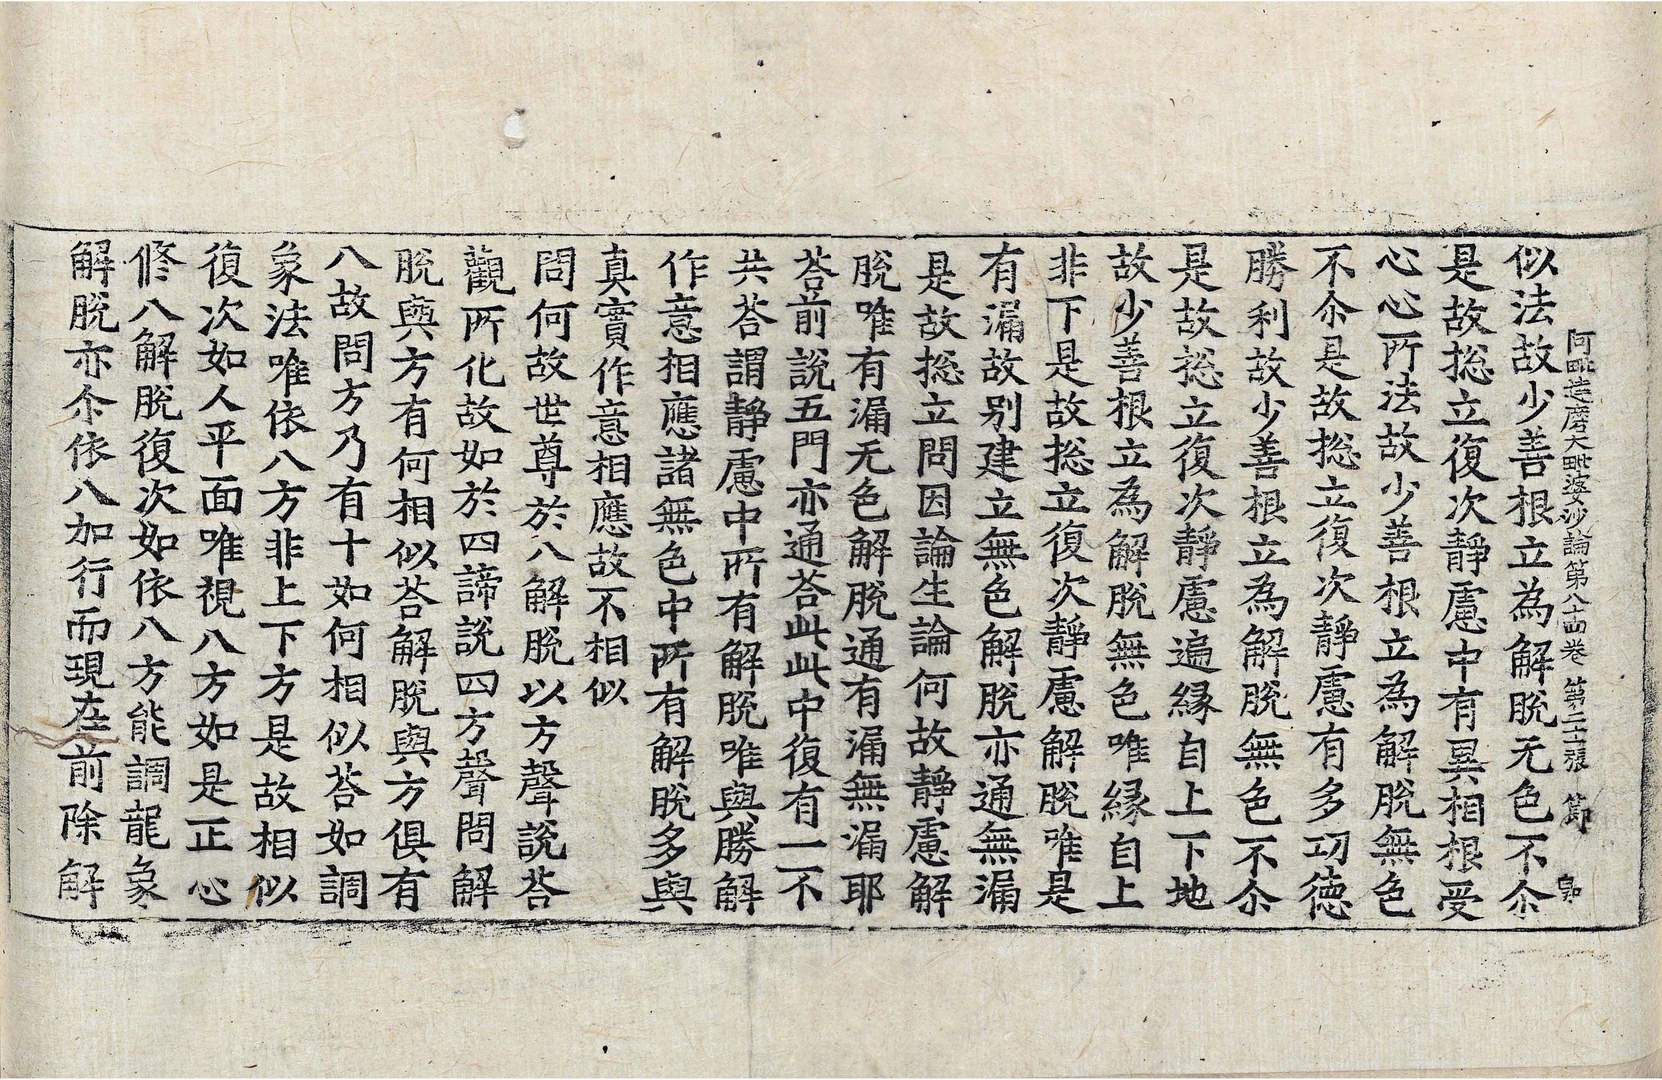 阿毗達磨大毗婆沙論第八十四卷 第二十張 節
似法故少善根立為解脫无色不尒
是故揔立復次靜慮中有異相根受
心心所法故少善根立為解脫無色
不尒是故揔立復次靜慮有多功徳
勝利故少善根立為解脫無色不尒
是故揔立復次靜慮遍縁自上下地
故少善根立為解脫無色唯縁自上
非下是故揔立復次靜慮解脫唯是
有漏故别建立無色解脫亦通無漏
是故揔立問因論生論何故靜慮解
脫唯有漏无色解脫通有漏無漏耶
荅前說五門亦通荅此此中復有一不
共荅謂靜慮中所有解脫唯與勝解
作意相應諸無色中所有解脫多與
真實作意相應故不相似
問何故世尊於八解脫以方聲說荅
觀所化故如於四諦說四方聲問解
脫與方有何相似荅解脫與方俱有
八故問方乃有十如何相似荅如調
象法唯依八方非上下方是故相似
復次如人平面唯視八方如是正心
修八解脫復次如依八方能調龍象
解脫亦尒依八加行而現在前除解